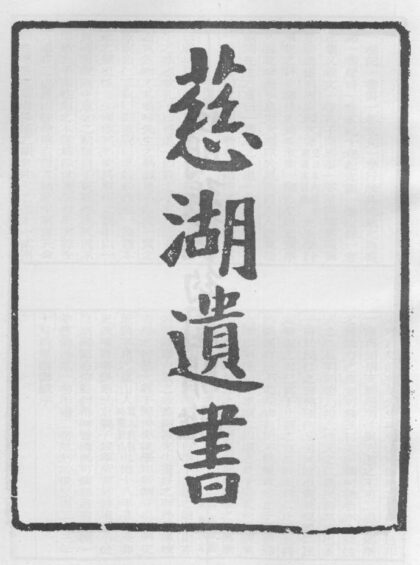 慈湖遺書